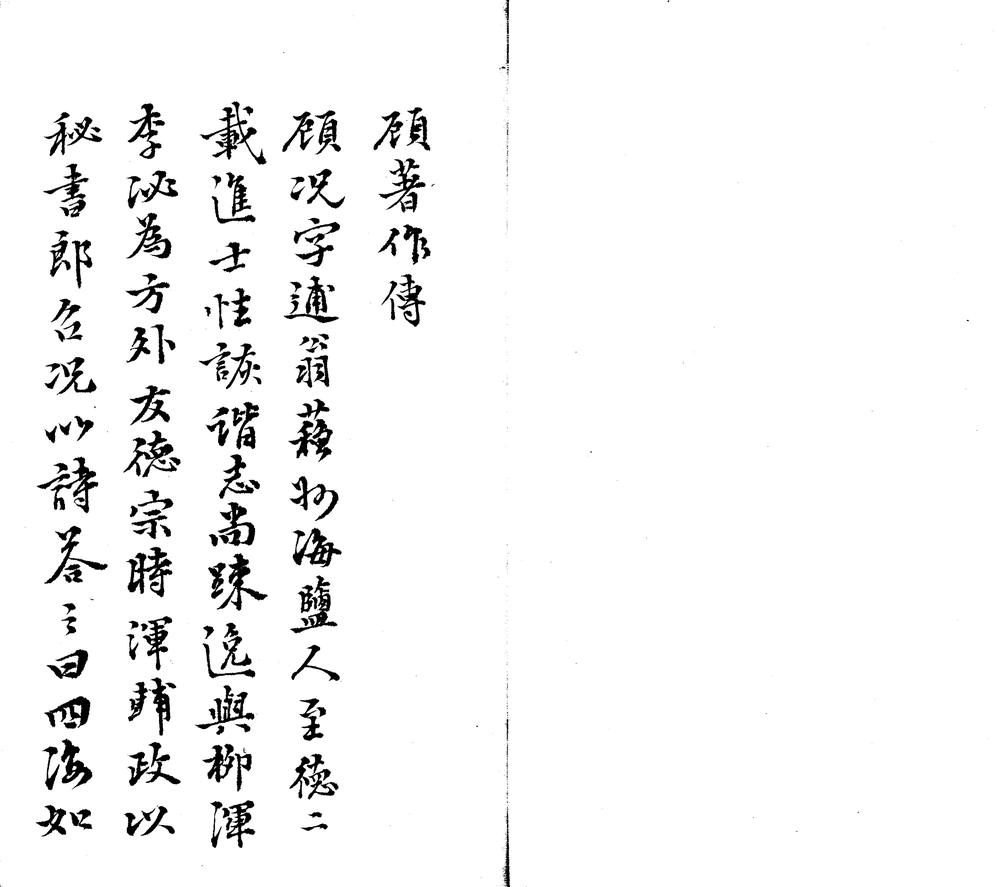 顧著作傳
顧況字逋翁蘇州海鹽人至德二
載進士性詼諧志尚踈逸與柳渾
李泌為方外友德宗時渾輔政以
秘書郎召况以詩荅之曰四海如